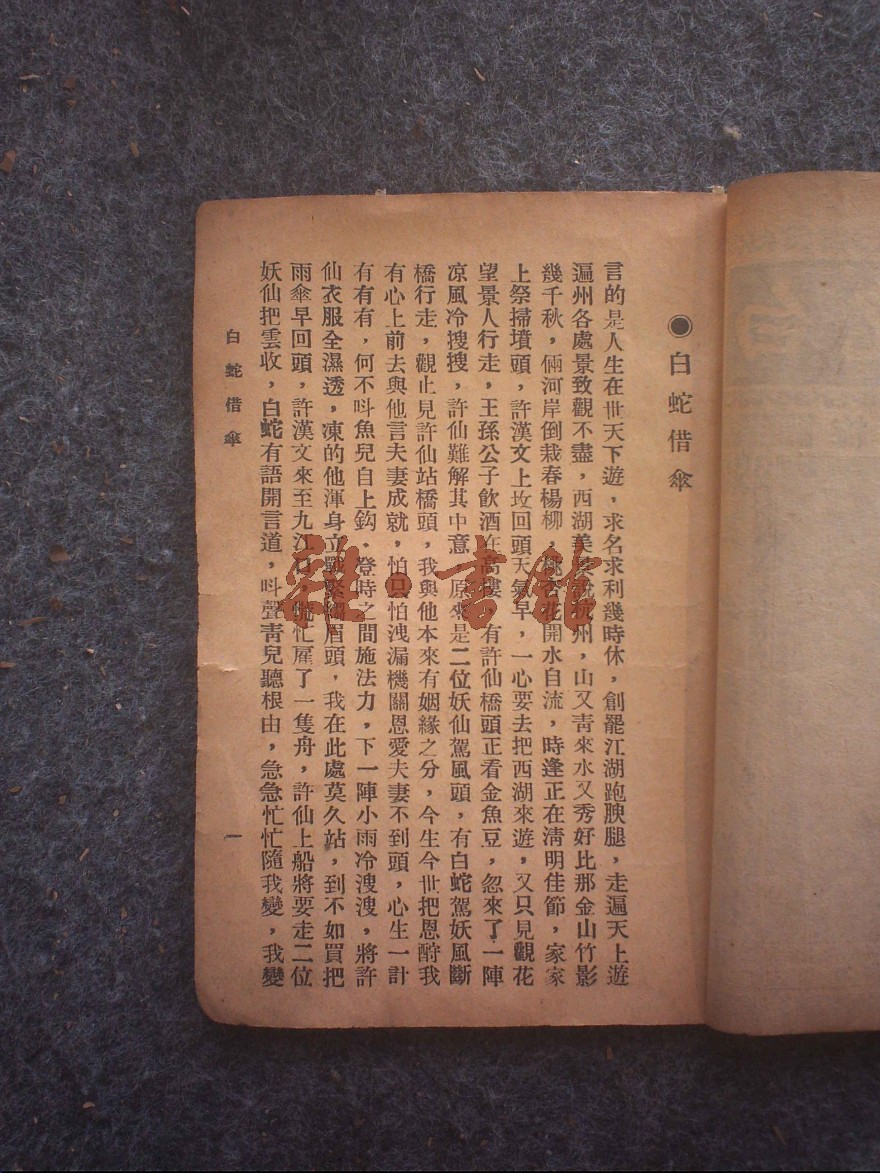 ◉白蛇借傘
言的是人生在世天下遊，求名求利幾時休，創罷江湖跑腴腿，走遍天上遊
遍州各處景致觀不盡，西湖美景說杭州，山又靑來水又秀好比那金山竹影
幾千秋，倆河岸倒栽春楊柳，桃杏花開水自流，時逢正在淸明佳節，家家
上祭掃墳頭，許漢文上坟回頭天氣早，一心要去把西湖來遊，又只見觀花
望景人行走，王孫公子飲酒在高樓，有許仙橋頭正看金魚豆，忽來了一陣
凉風冷搜搜，許仙難解其中意，原來是二位妖仙駕風頭，有白蛇駕妖風斷
橋行走，觀止見許仙站橋頭，我與他本來有姻緣之分，今生今世把恩酧我
有心上前去與他言夫妻成就，怕只怕洩漏機關恩愛夫妻不到頭，心生一計
有有有，何不呌魚兒自上鈎，登時之間施法力，下一陣小雨冷溲溲，將許
仙衣服全濕透，凍的他渾身立戰緊縐眉頭，我在此處莫久站，到不如買把
雨傘早回頭，許漢文來至九江口，慌忙雇了一隻舟，許仙上船將要走二位
妖仙把雲收，白蛇有語開言道，呌聲靑兒聽根由，急急忙忙隨我變，我變
白蛇借傘
一
書館